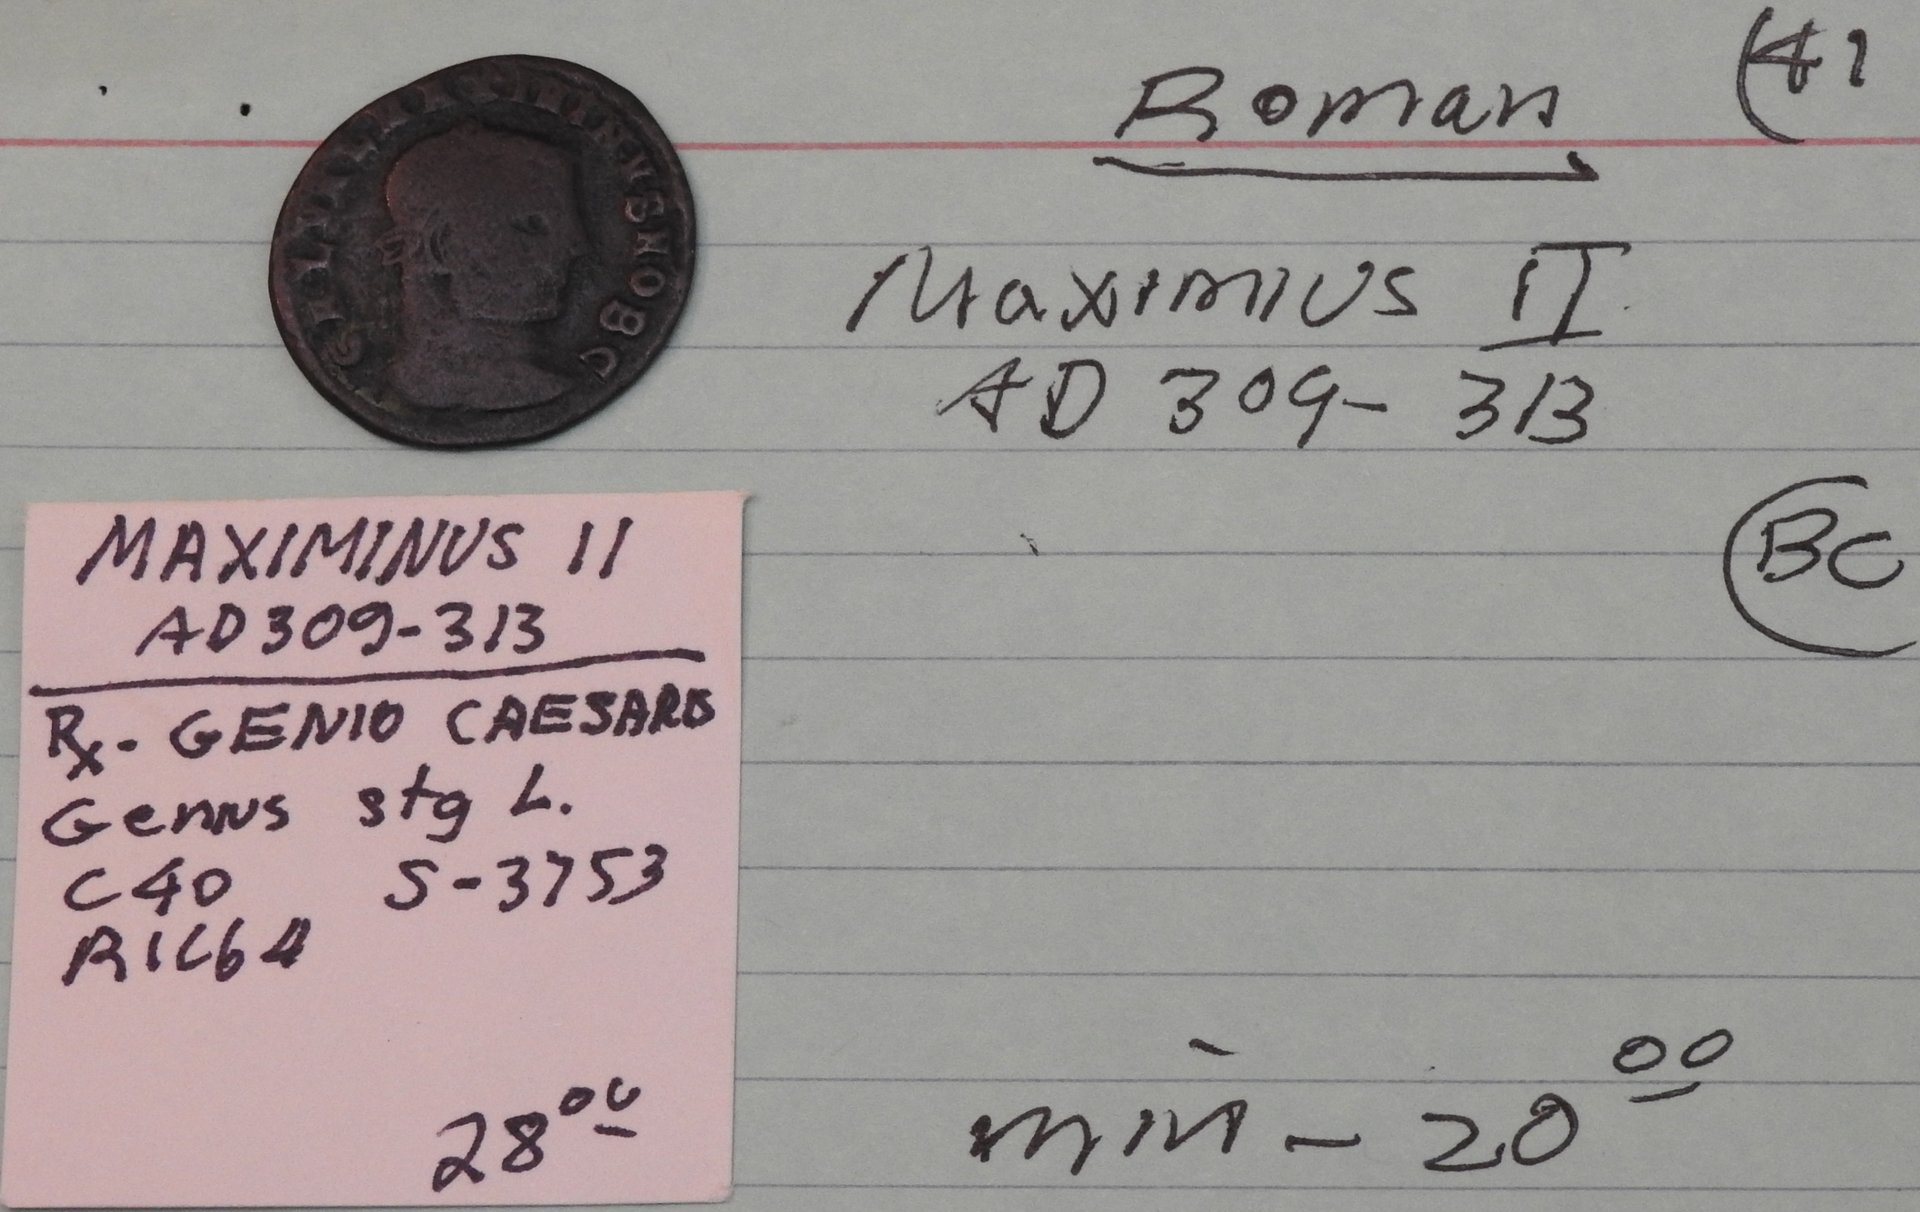 GALVALMAXIMINVSNOBC
Roman
41
Maximius II
AD 309-313
BC
MAXIMINUS II
AD 309-313
Rx- GENIO CAESARIS
Genius stg L.
C40 S-3753
RIC64
28 00
min - 20 00